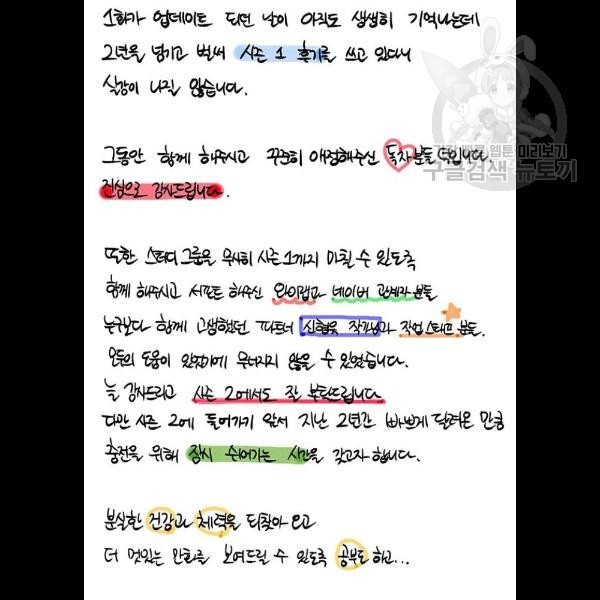 1화가 업데이트 되던 날이 아직도 생생히 기억나는데
2년을 넘기고 벌써 시즌 1 후기를 쓰고 있다니
실감이 나질 않습니다.
그동안 함께 해주시고 꾸준히 애정해주신 독자분들 덕입니다.
진심으로 감사드립니다.
또한 스터디 그룹을 무사히 시즌 1까지 마칠 수 있도록
함께 해주시고 서포트 해주신 와이랩과 네이버 관계자분들
누구보다 함께 고생했던 파트너 신형욱 작가님과 작업스태프 분들.
모두의 도움이 있었기에 무너지지 않을 수 있었습니다.
늘 감사드리고 시즌 2에서도 잘 부탁드립니다
다만 시즌 2에 들어가기 앞서 지난 2년간 바쁘게 달려온 만큼
충전을 위해 잠시 쉬어가는 시간을 갖고자 합니다.
분실한 건강과 체력을 되찾아 오고
더 멋있는 만화를 보여드릴 수 있도록 공부도 하고...
가장 빠른 웹툰 미리보기
구글검색 뉴토끼